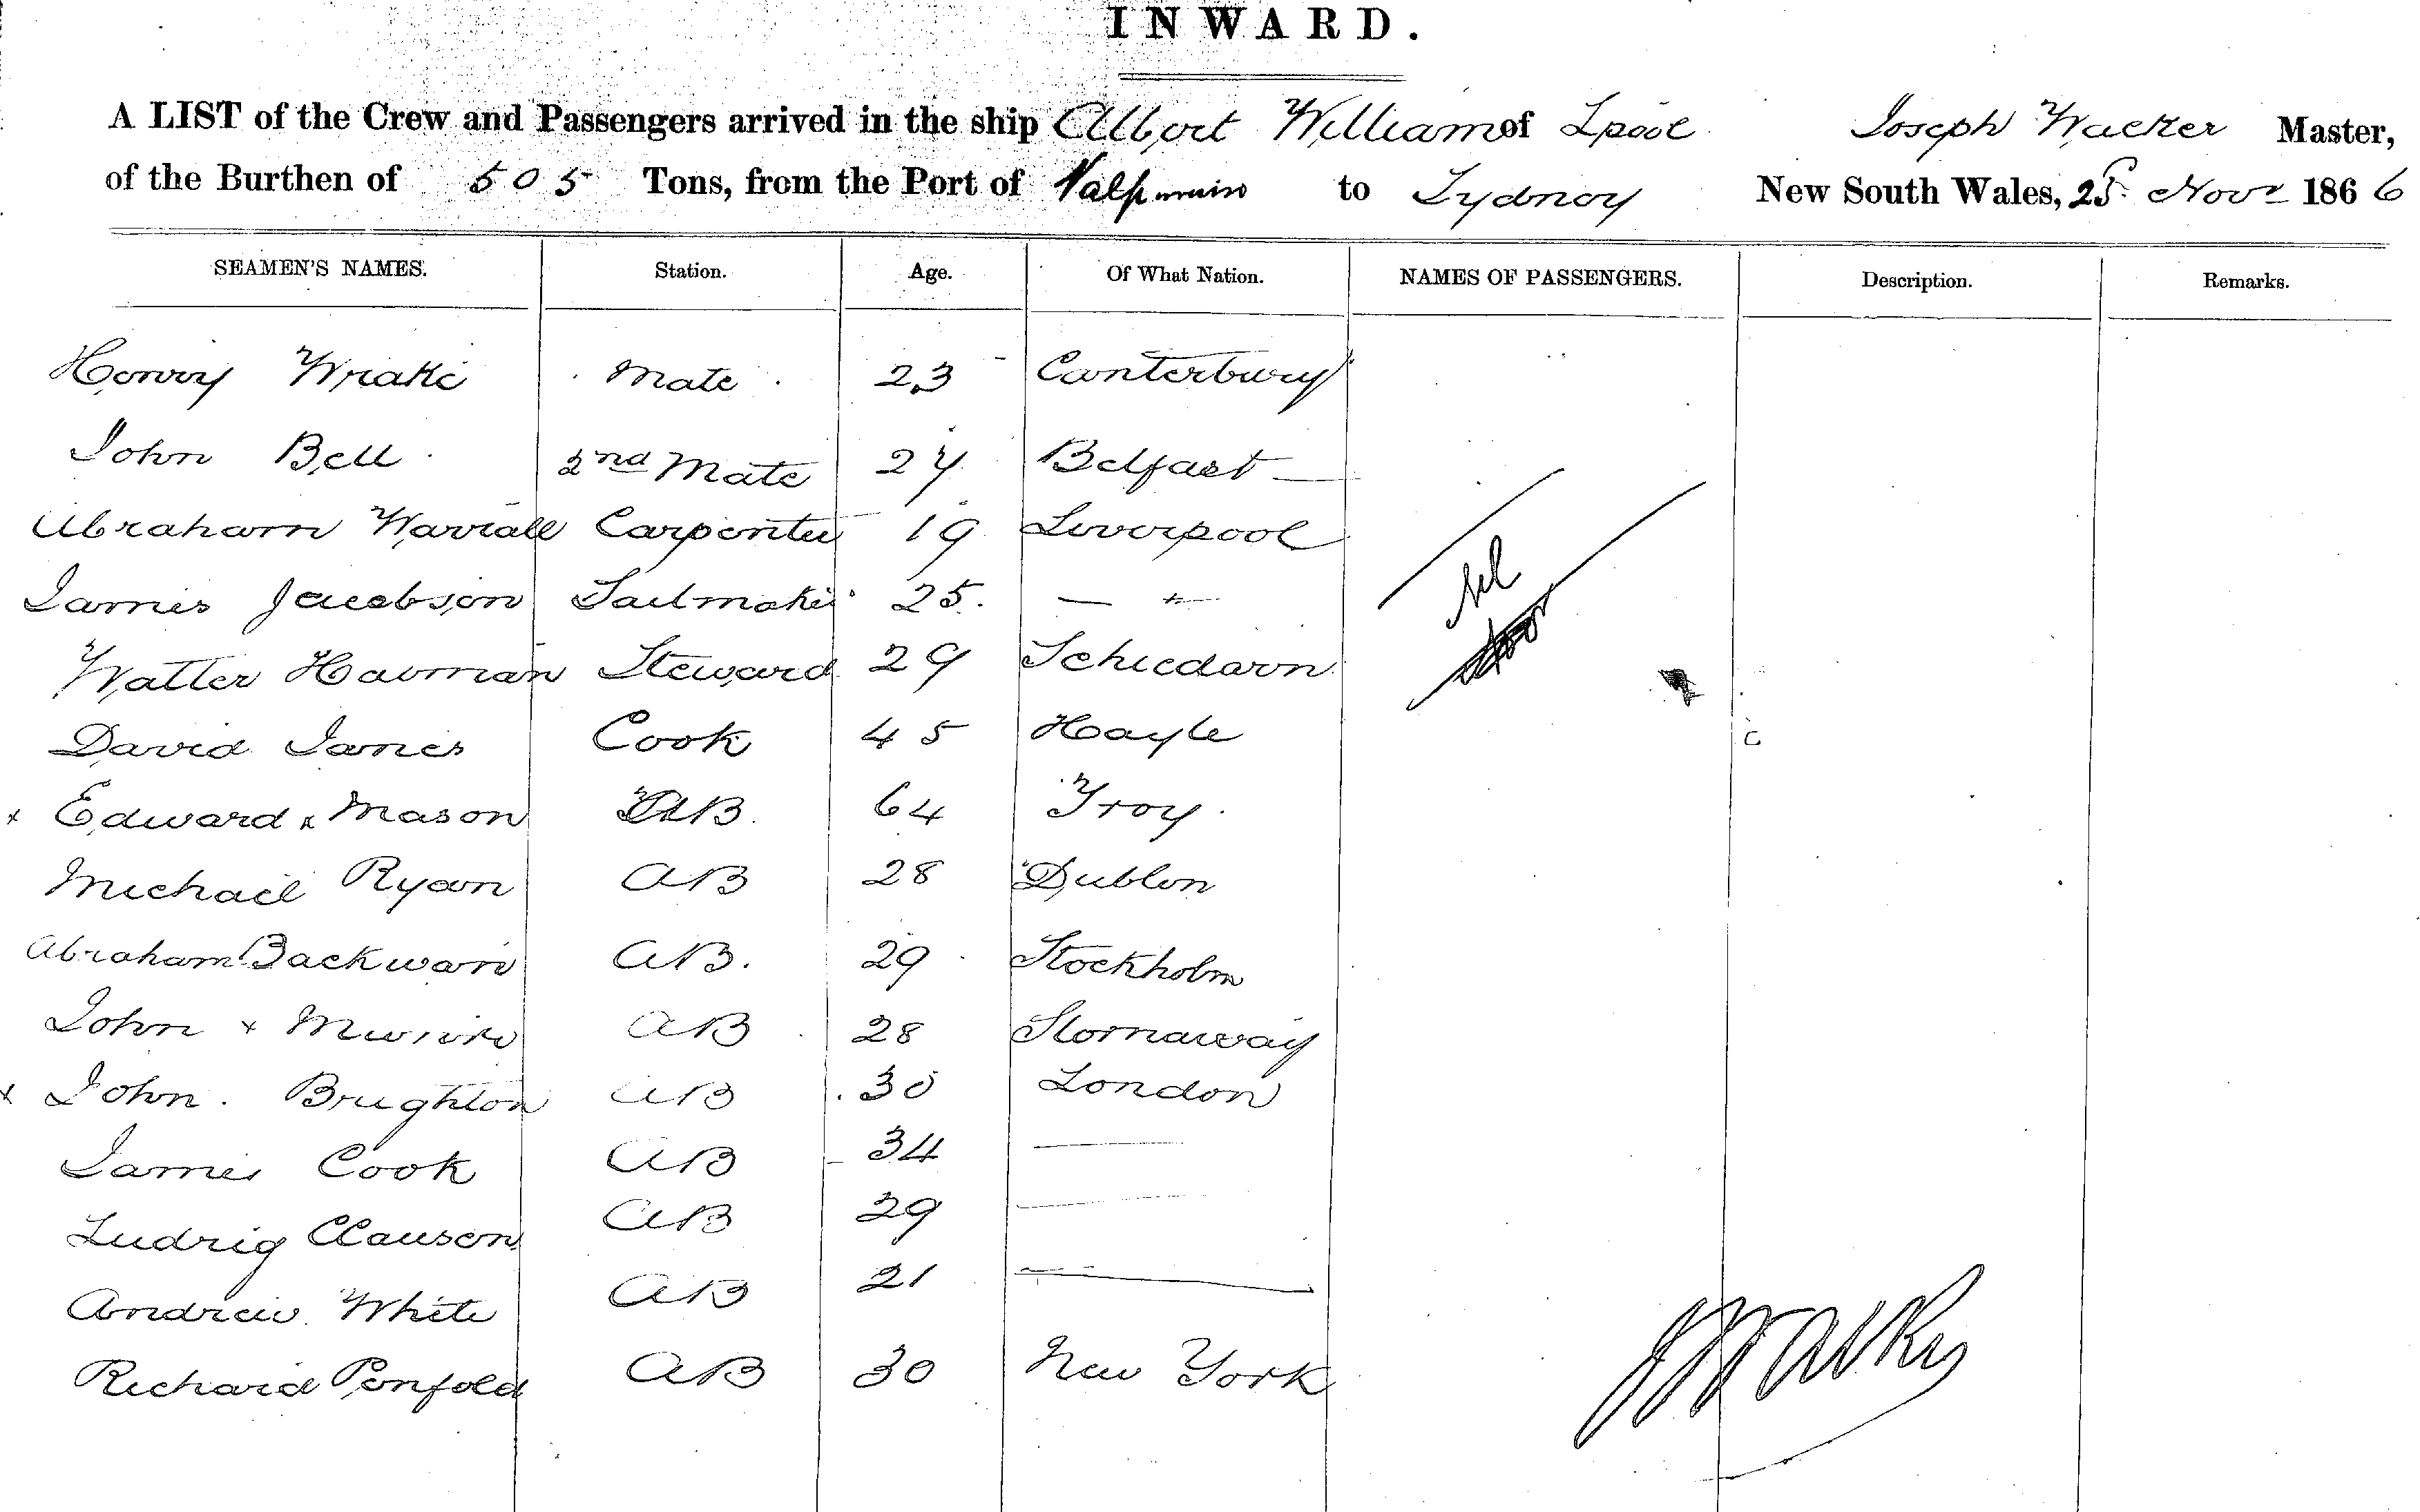 INWARD.
A LIST of the Crew and Passengers arrived in the ship Albert William of Lpool Joseph Walker Master,
of the Burthen of 505 Tons, from the Port of Valparaiso to Sydney New South Wales, 25 Novr 1866
SEAMEN'S NAMES. Station. Age. Of What Nation. NAMES OF PASSENGERS. Description. Remarks.
Henry Wrake Mate 23 Canterbury
John Bell 2nd Mate 27 Belfast
Abraham Warrall Carpenter 19 Liverpool
James Jacobson Sailmaker 25. — "
Walter Hauman Steward 29 Schiedam
David James Cook 45 Hayle
x Edward x Mason AB. 64 Troy
Michael Ryan AB 28 Dublin
Abraham Backman AB. 29 Stockholm
John x Munro AB 28 Stornaway
x John. Brighton AB 30 London
James Cook AB 34 —
Ludvig Clausen AB 29 —
Andrew White AB 21 —
Richard Penfold AB 30 New York
Nil
J Walker